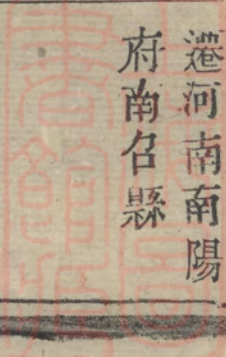 遷河南南陽
府南召縣